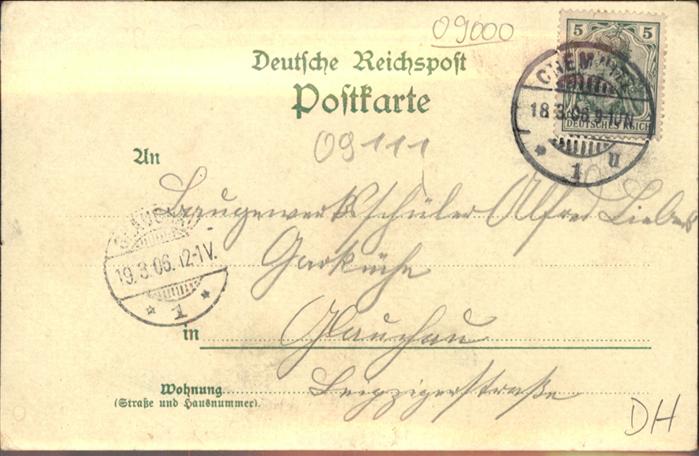 09000
5 5
Deutsche Reichspost
Postkarte
CHEM
18.3.06.9-10N.
DEUTSCHES REICH
* 1 u
09111
An
Baugewerksschüler Alfred
GLAUCHAU
19.3.06.12-1V.
* 1 *
Garküche
in Glauchau
Wohnung Leipzigerstraße
(Straße und Hausnummer).
DH